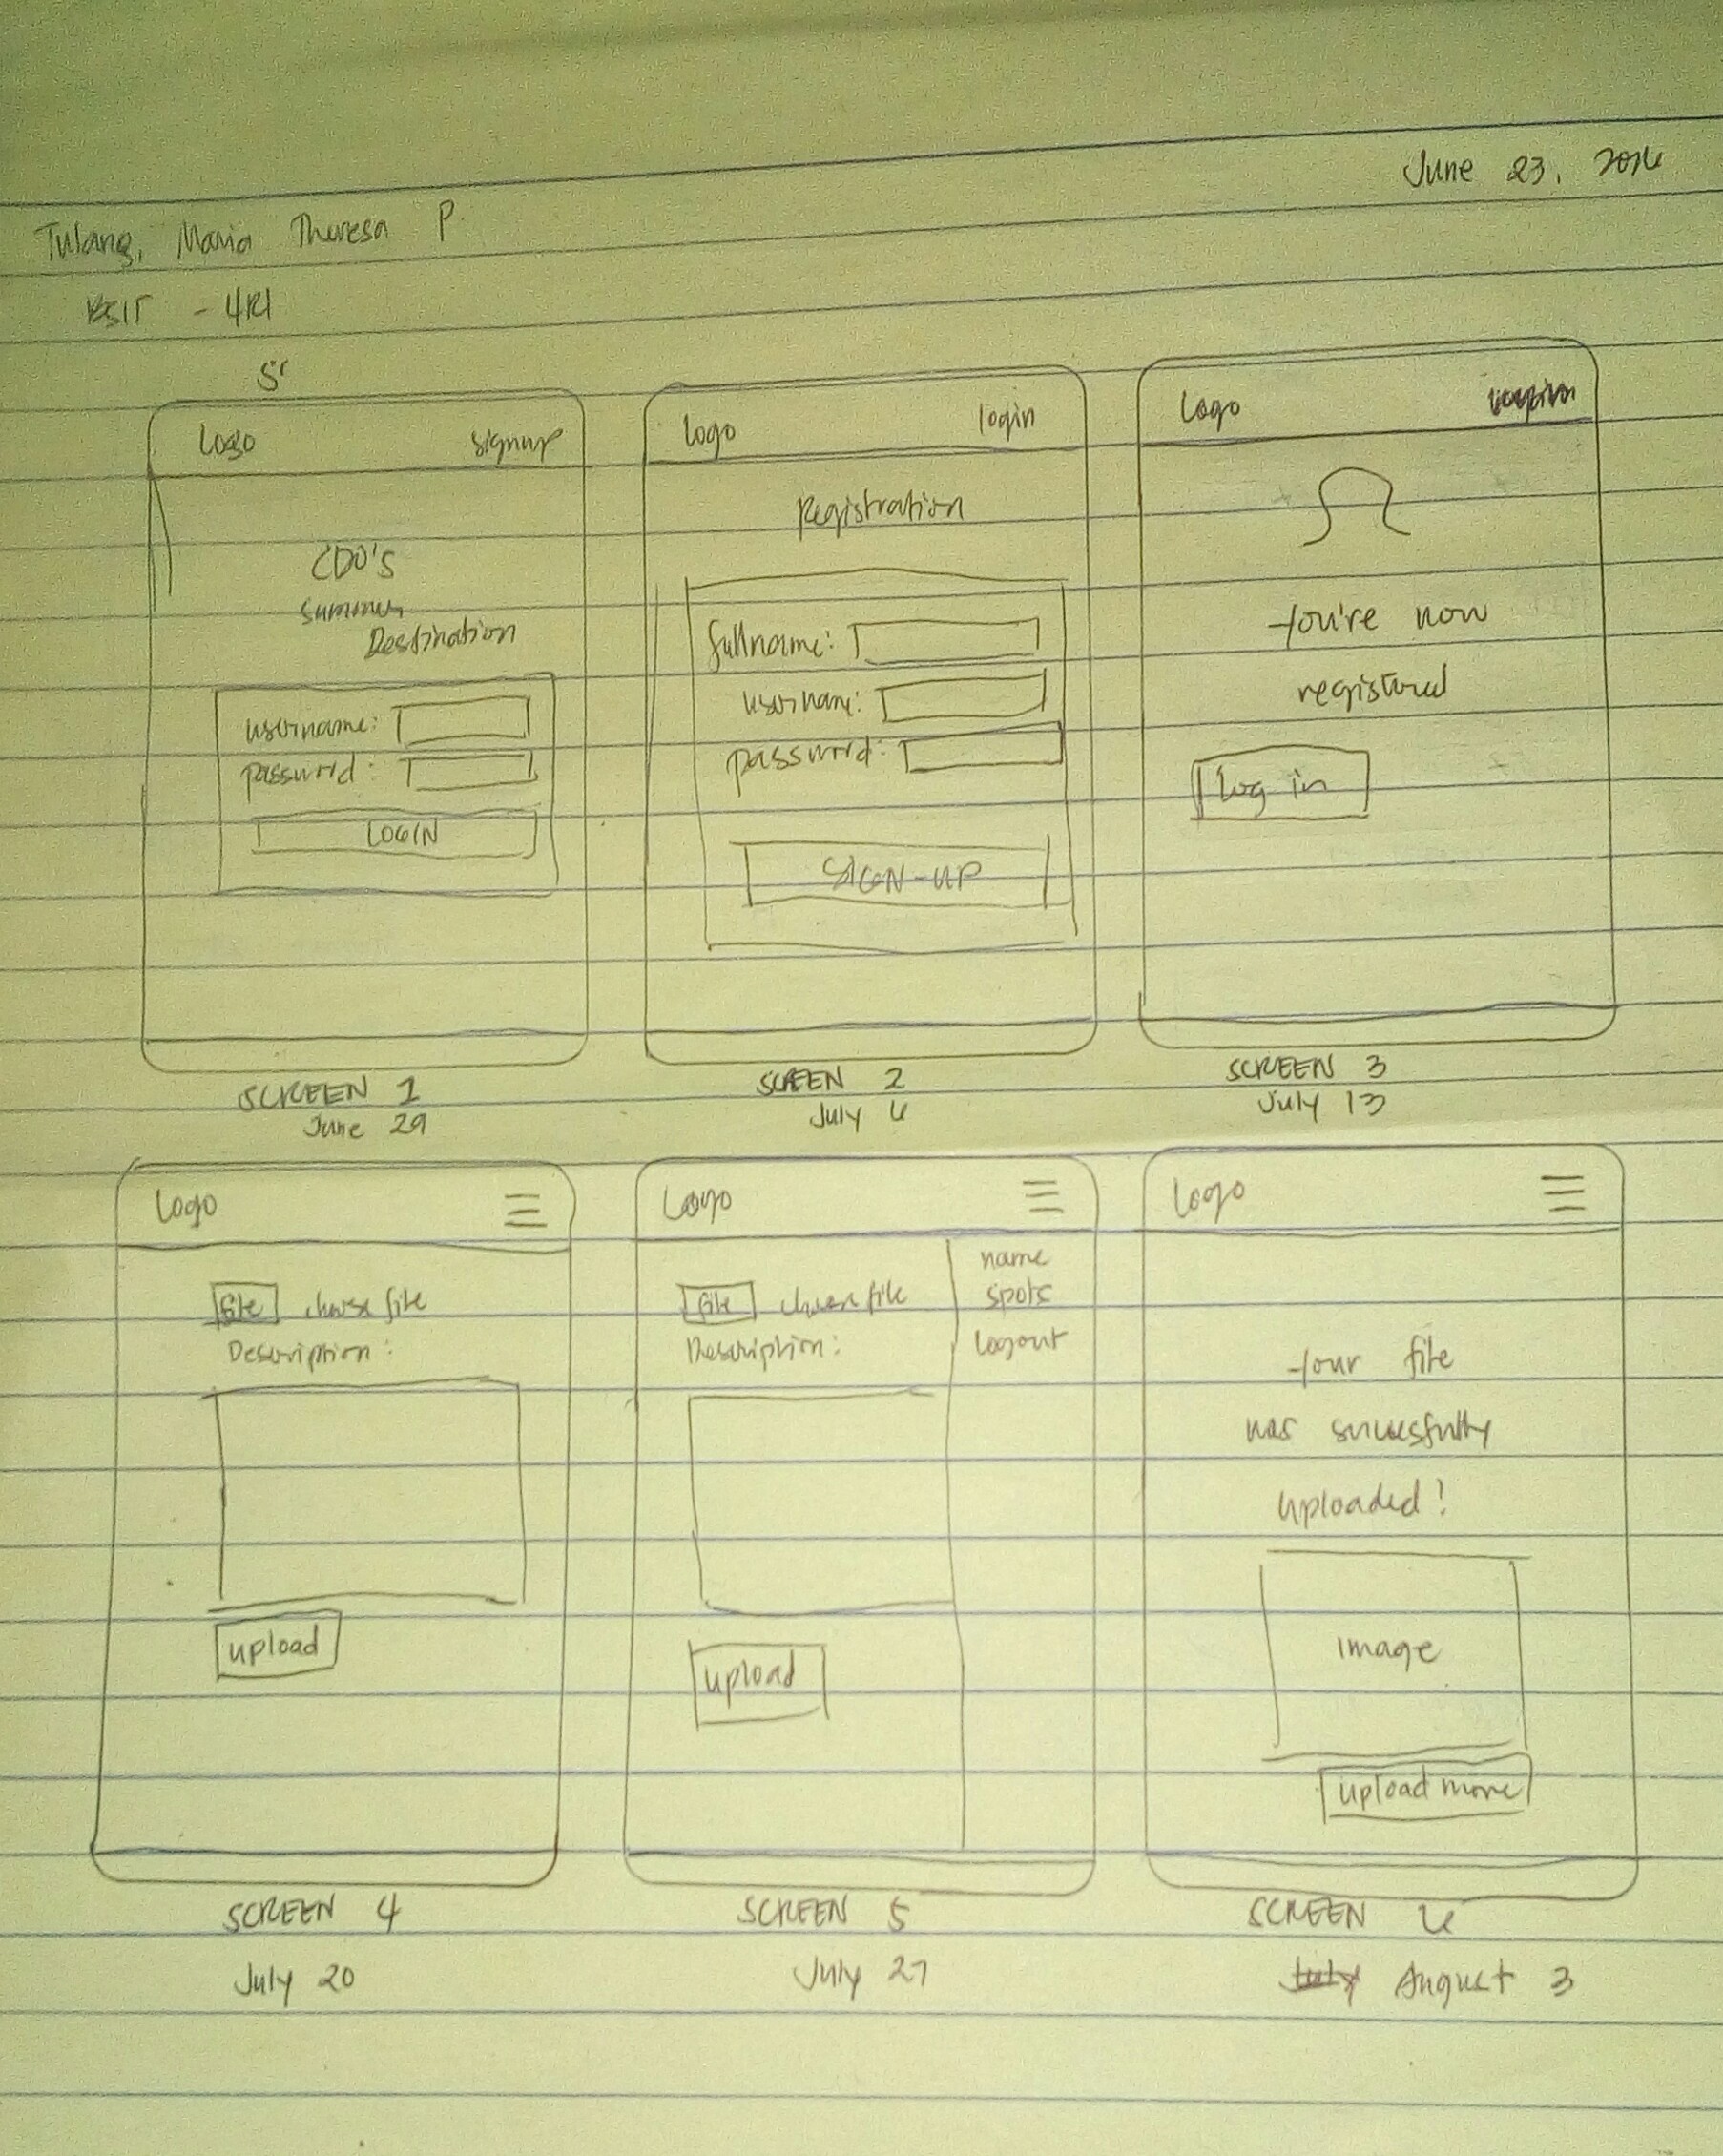 June 23, 2016
Tulang, Maria Theresa P.
BSIT - 4R1
S
Logo signup
CDO'S
Summer
Destination
username:
password:
LOGIN
SCREEN 1
June 29
Logo login
Registration
fullname:
username:
password:
SIGN-UP
SCREEN 2
July 6
Logo
You're now
registered
Log in
SCREEN 3
July 13
Logo
file choose file
Description:
upload
SCREEN 4
July 20
Logo
name
file choose file spots
Description: Logout
upload
SCREEN 5
July 27
Logo
Your file
was succesfully
uploaded!
Image
upload more
SCREEN 6
July August 3